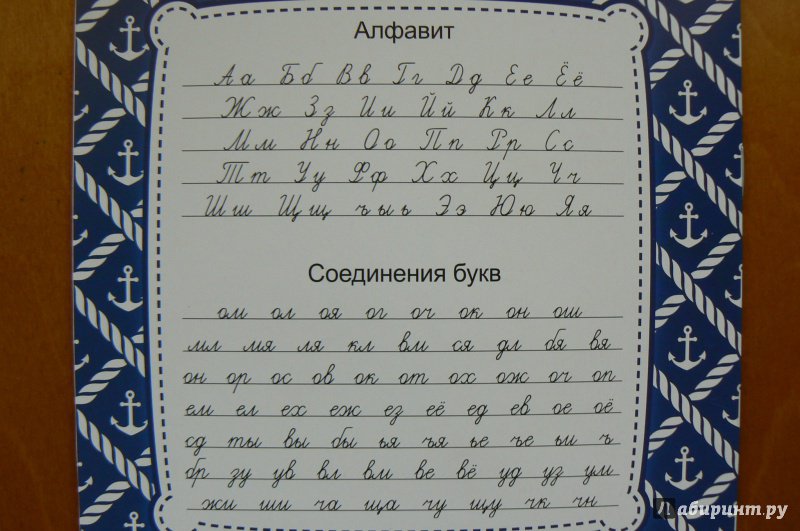 Алфавит
Аа Бб Вв Гг Дд Ее Ёё
Жж Зз Ии Йй Кк Лл
Мм Нн Оо Пп Рр Сс
Тт Уу Фф Хх Цц Чч
Шш Щщ ъ ы ь Ээ Юю Яя
Соединения букв
ом ол оя ог оч ок он ош
мл мя ля кл вм ся дл бя вя
он ор ос ов ок от ох ож оч оп
ем ел ех еж ез её ед ев ое оё
сд ты вы бы ья ъя ье ъе ьи ъ
бр зу ув вл вм ве вё уд уз ум
жи ши ча ща чу щу чк чн
Лабиринт.ру